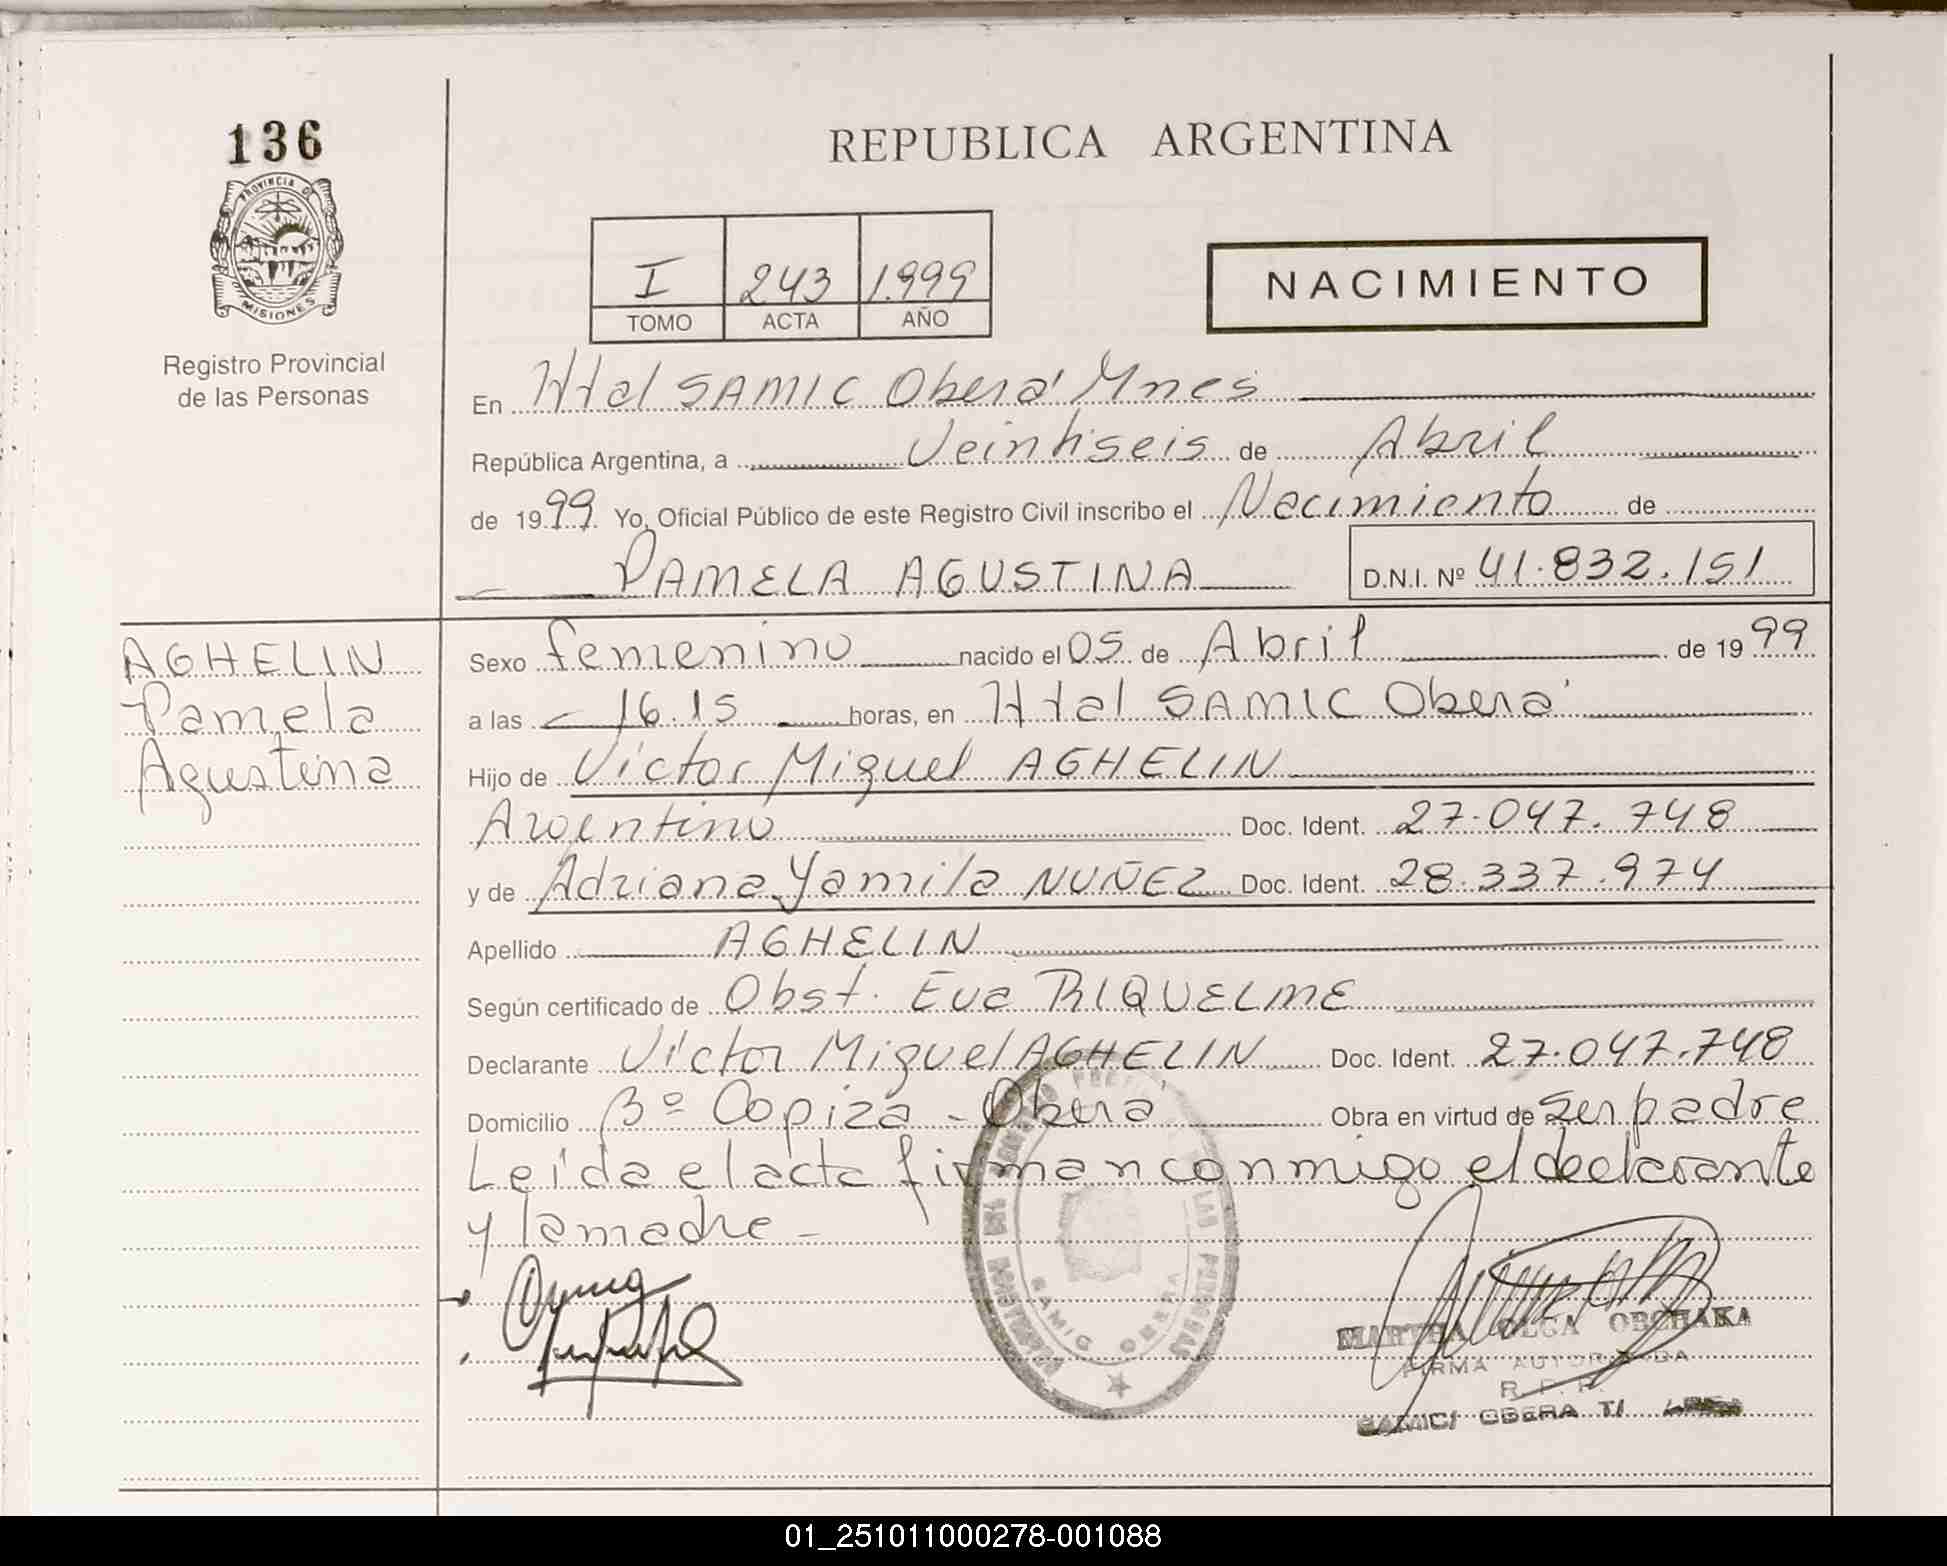 136
REPUBLICA ARGENTINA
PROVINCIA DE
MISIONES
Registro Provincial
de las Personas
I 243 1.999
TOMO ACTA AÑO
NACIMIENTO
En Htal SAMIC Oberá Mnes
República Argentina, a Veintiseis de Abril
de 1999 Yo, Oficial Público de este Registro Civil inscribo el Nacimiento de
PAMELA AGUSTINA D.N.I. Nº 41.832.151
AGHELIN
Pamela
Agustina
Sexo femenino nacido el 05 de Abril de 1999
a las 16.15 horas, en Htal SAMIC Oberá
Hijo de Victor Miguel AGHELIN
Argentino Doc. Ident. 27.047.748
y de Adriana Yamila NUÑEZ Doc. Ident. 28.337.974
Apellido AGHELIN
Según certificado de Obst. Eva RIQUELME
Declarante Victor Miguel AGHELIN Doc. Ident. 27.047.748
Domicilio Bº Copiza - Oberá Obra en virtud de ser padre
Leída el acta firman conmigo el declarante
y la madre -
SAMIC OBERA
MARTHA OLGA OBCHAKA
FIRMA AUTORIZADA
R. P. P.
SAMIC/ OBERA
01_251011000278-001088